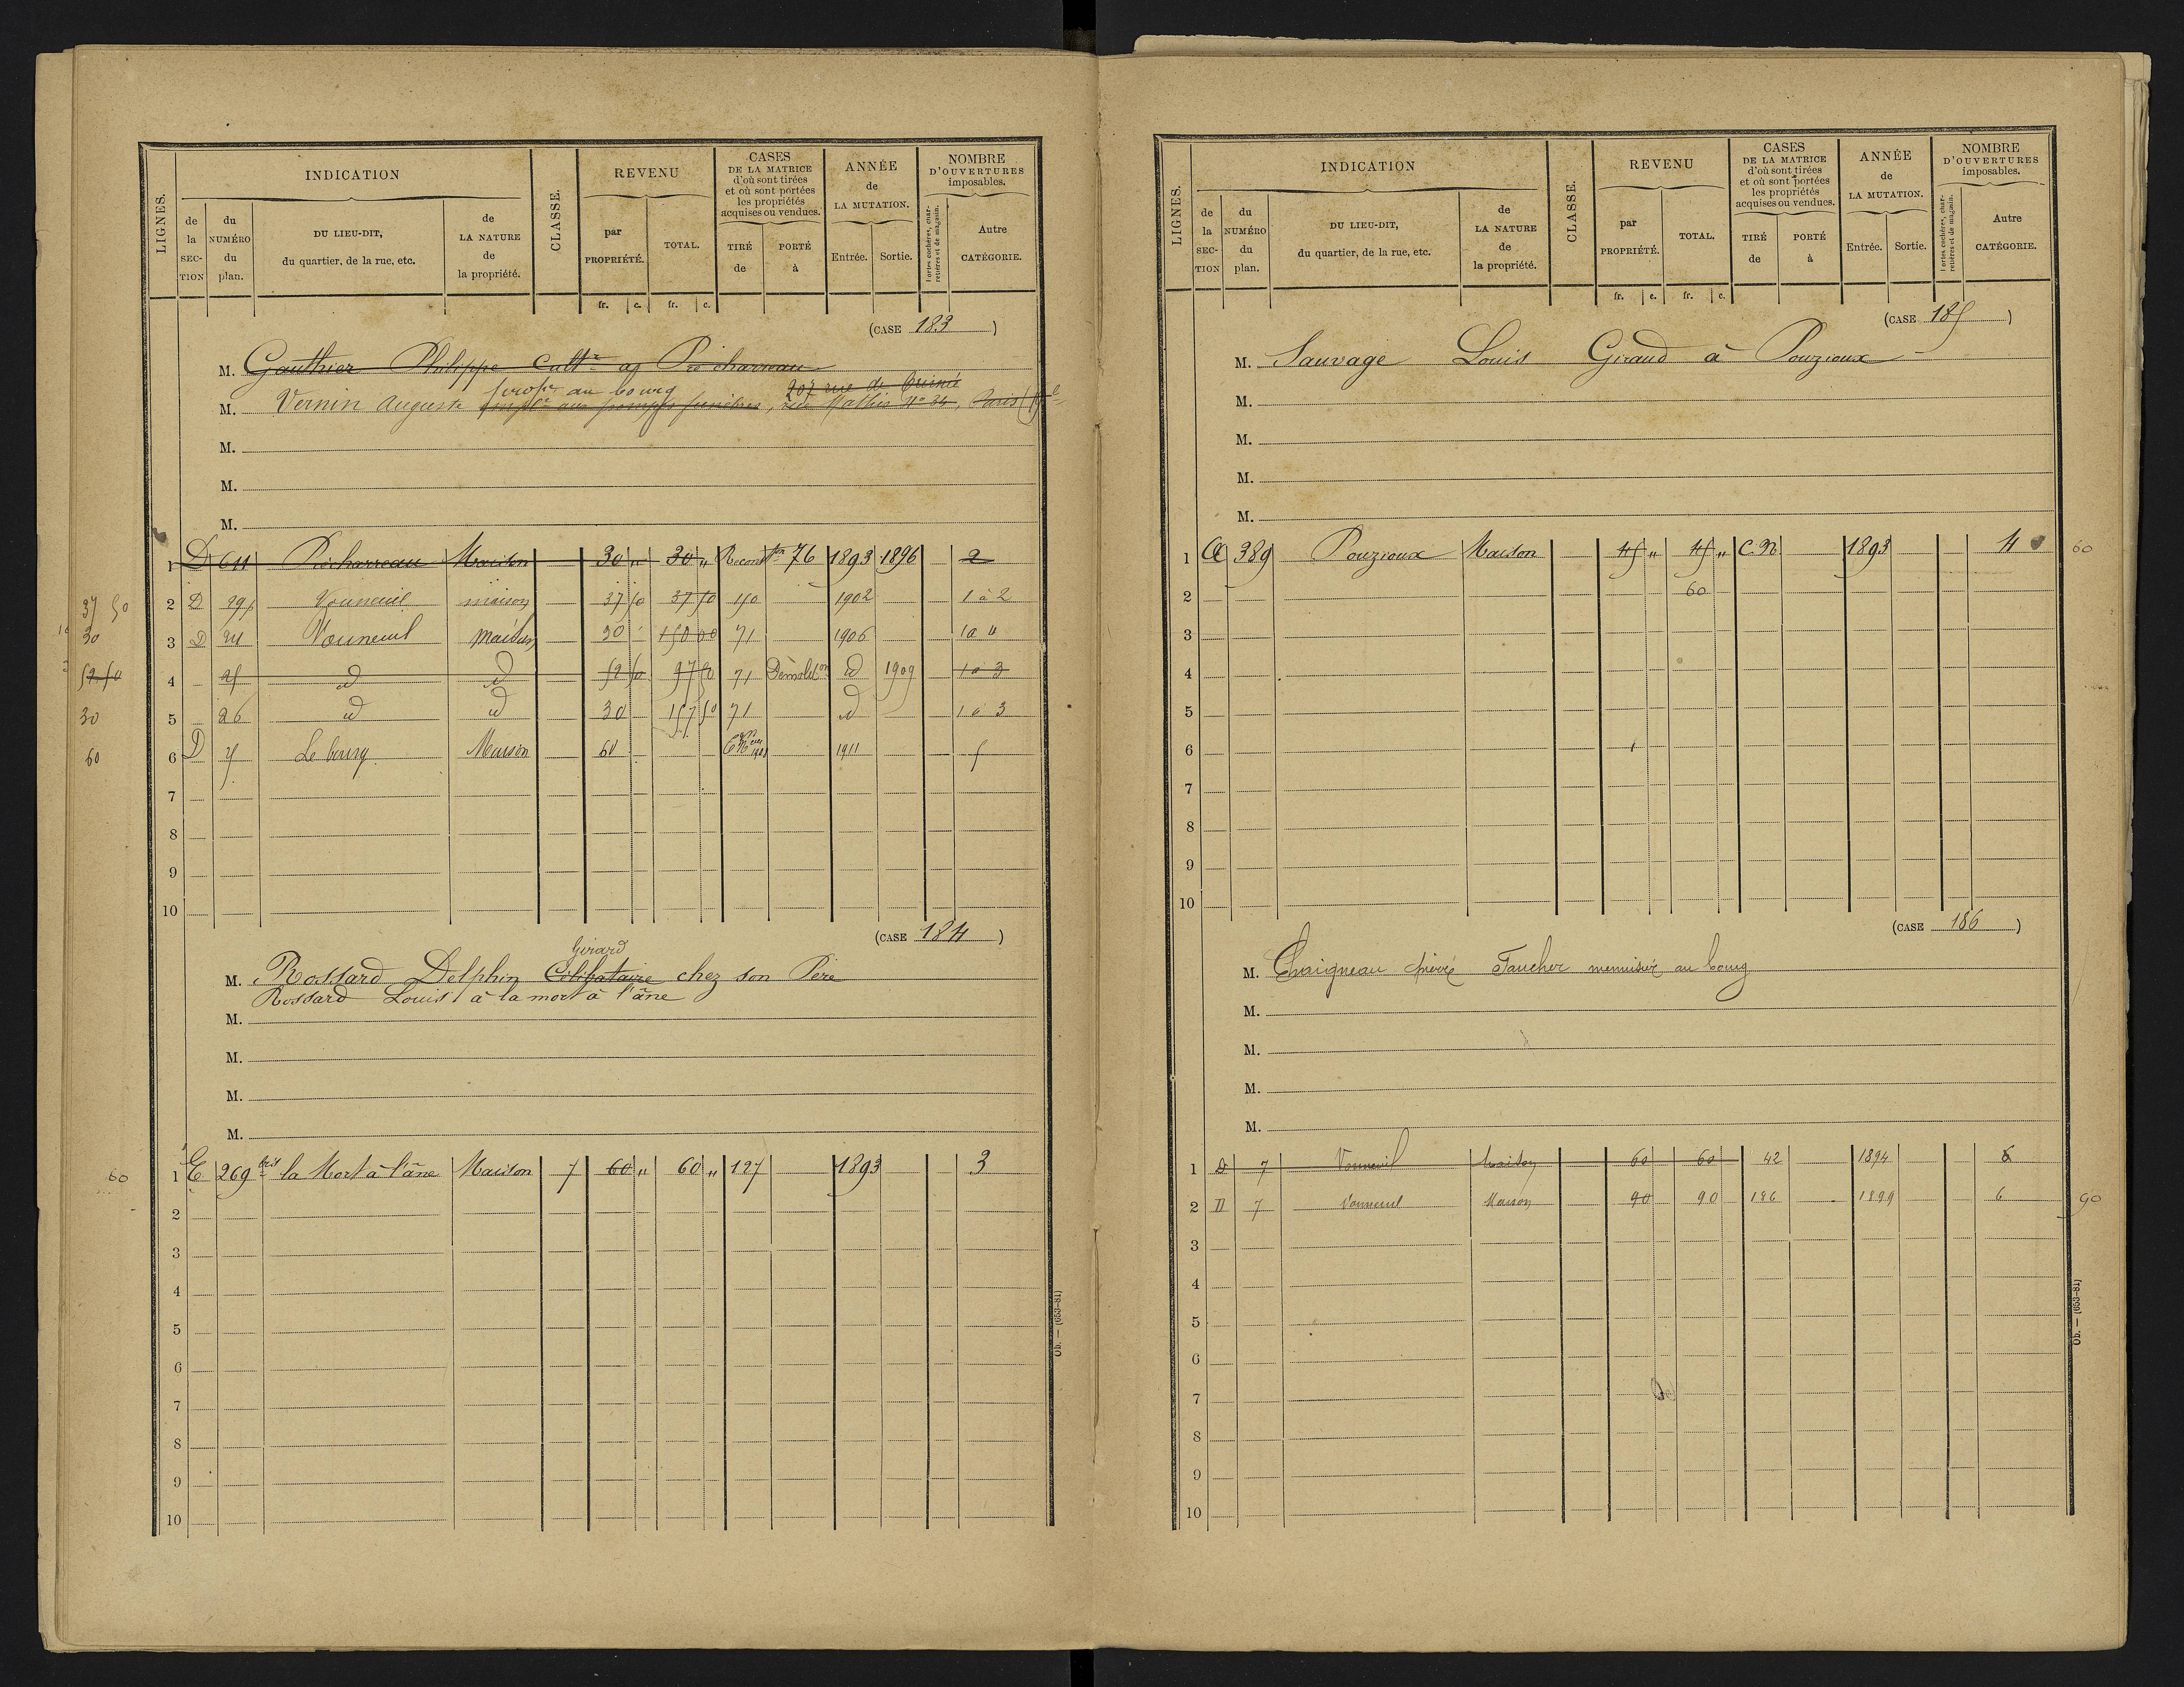 LIGNES.
INDICATION
de la SECTION
du NUMÉRO du plan.
DU LIEU-DIT, du quartier, de la rue, etc.
de LA NATURE de la propriété.
CLASSE.
REVENU
par PROPRIÉTÉ.
TOTAL.
fr. c. fr. c.
CASES DE LA MATRICE d'où sont tirées et où sont portées les propriétés acquises ou vendues.
TIRÉ de
PORTÉ à
ANNÉE de LA MUTATION.
Entrée. Sortie.
NOMBRE D'OUVERTURES imposables.
Portes cochères, charretières et de magasin.
Autre CATÉGORIE.
(CASE 183)
M. Gauthier Philippe Cultr
propre au bourg
207 rue de
M. Vernin Auguste pompes funèbres, rue Mathis No 34, Paris
M.
M.
M.
1 D 611 Maison 30 " 30 " 76 1893 1896 2
37 50
2 D Vouneuil maison 37 50 37 50 150 1902 1 à 2
30
3 D 24 Vouneuil maison 30 150 00 71 1906 1 à 4
52 50
4 25 d d 52 50 97 50 71 Démoliton d 1909 1 à 3
30
5 26 d d 30 157 50 71 d 1 à 3
60
6 D Le bourg Maison 60 1911 5
7
8
9
10
(CASE 184)
Girard
M. Rossard Delphin Célibataire chez son Père
Rossard Louis à la mort à l'âne
M.
M.
M.
M.
60
1 E 269 bis la Mort à l'âne Maison 7 60 " 60 " 127 1893 3
2
3
4
5
6
7
8
9
10
Ob. — (653-81)
LIGNES.
INDICATION
de la SECTION
du NUMÉRO du plan.
DU LIEU-DIT, du quartier, de la rue, etc.
de LA NATURE de la propriété.
CLASSE.
REVENU
par PROPRIÉTÉ.
TOTAL.
fr. c. fr. c.
CASES DE LA MATRICE d'où sont tirées et où sont portées les propriétés acquises ou vendues.
TIRÉ de
PORTÉ à
ANNÉE de LA MUTATION.
Entrée. Sortie.
NOMBRE D'OUVERTURES imposables.
Portes cochères, charretières et de magasin.
Autre CATÉGORIE.
(CASE 185)
M. Sauvage Louis Giraud à Pouzioux
M.
M.
M.
M.
1 A 389 Pouzioux Maison 45 " 45 " C.N. 1893 4 60
2 60
3
4
5
6
7
8
9
10
(CASE 186)
M. Chaigneau pierre Faucher menuisier au bourg
M.
M.
M.
M.
1 D 7 Vouneuil Maison 60 60 42 1894 6
2 D 7 Vouneuil Maison 90 90 186 1899 6 90
3
4
5
6
7
8
9
10
Ob. — (653-81)